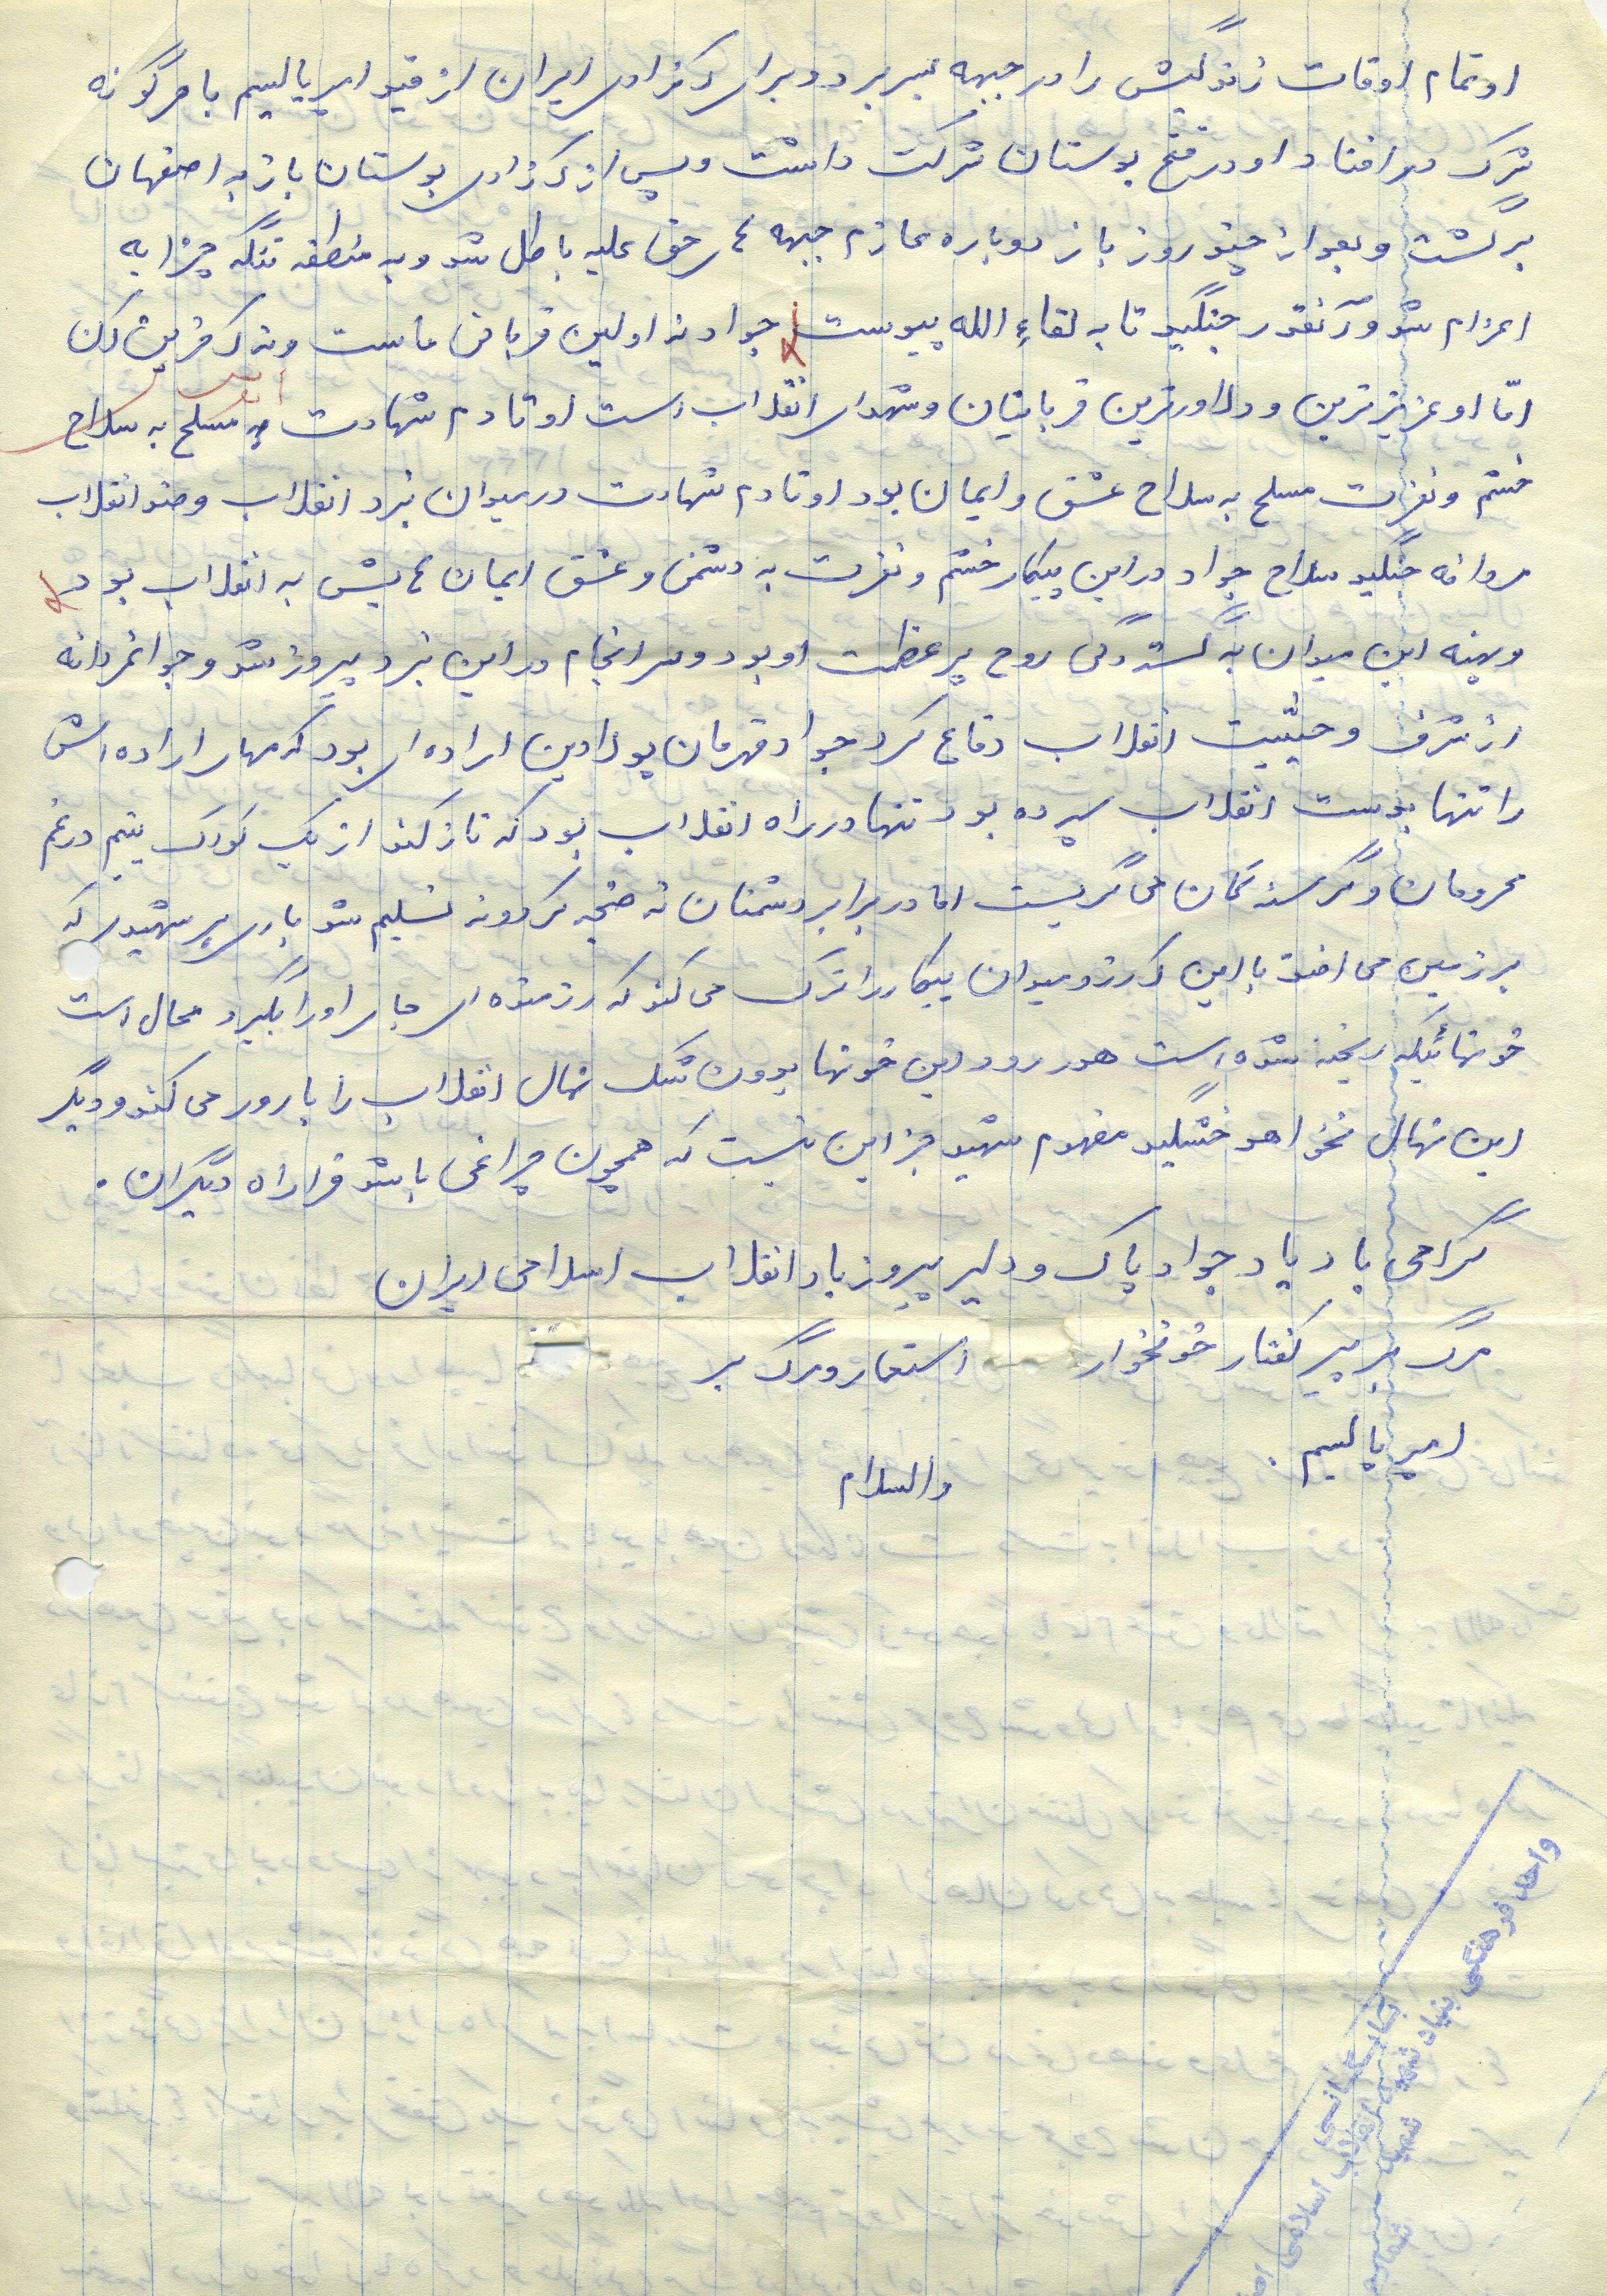 او تمام اوقات زندگیش را در جبهه بسر برد و برای آزادی ایران از قید امپریالیسم با هرگونه
شرک در افتاد او در فتح بوستان شرکت داشت و پس از آزادی بوستان باز به اصفهان
برگشت و بعد از چند روز باز دوباره عازم جبهه های حق علیه باطل شد و به منطقه تنگه چزابه
اعزام شد و آنقدر جنگید تا به لقاءِ الله پیوست جواد نه اولین قربانی ماست و نه آخرین آن
امّا او عزیزترین و دلاورترین قربانیان و شهدای انقلاب است او تا دم شهادت مسلح به سلاح
خشم و نفرت مسلح به سلاح عشق و ایمان بود او تا دم شهادت در میدان نبرد انقلاب و ضد انقلاب
مردانه جنگید سلاح جواد در این پیکار خشم و نفرت به دشمن و عشق ایمان هایش به انقلاب بود
و پهنه این میدان به گستردگی روح پر عظمت او بود و سرانجام در این نبرد پیروز شد و جوانمردانه
از شرف و حیثیت انقلاب دفاع کرد جواد قهرمان پولادین اراده ای بود که مهار اراده اش
را تنها بدست انقلاب سپرده بود تنها در راه انقلاب بود که ناز کند از یک کودک یتیم در غم
محرومان و گرسنه گان می گریست اما در برابر دشمنان نه ضجه کرد و نه تسلیم شد باری هر شهیدی که
بر زمین می افتد با این آرزو میدان پیکار را ترک می کند که رزمنده ای جای او را بگیرد محال است
خونهائیکه ریخته شده است هدر رود این خونها بدون شک نهال انقلاب را بارور می کند و دیگر
این نهال نخواهد خشکید مفهوم شهید جز این نیست که همچون چراغی باشد فرا راه دیگران .
گرامی باد یاد جواد پاک و دلیر پیروز باد انقلاب اسلامی ایران
مرگ بر پیر کفتار خونخوار استعمار و مرگ بر
امپریالیسم .
والسلام
واحد فرهنگی بنیاد شهید
انقلاب اسلامی